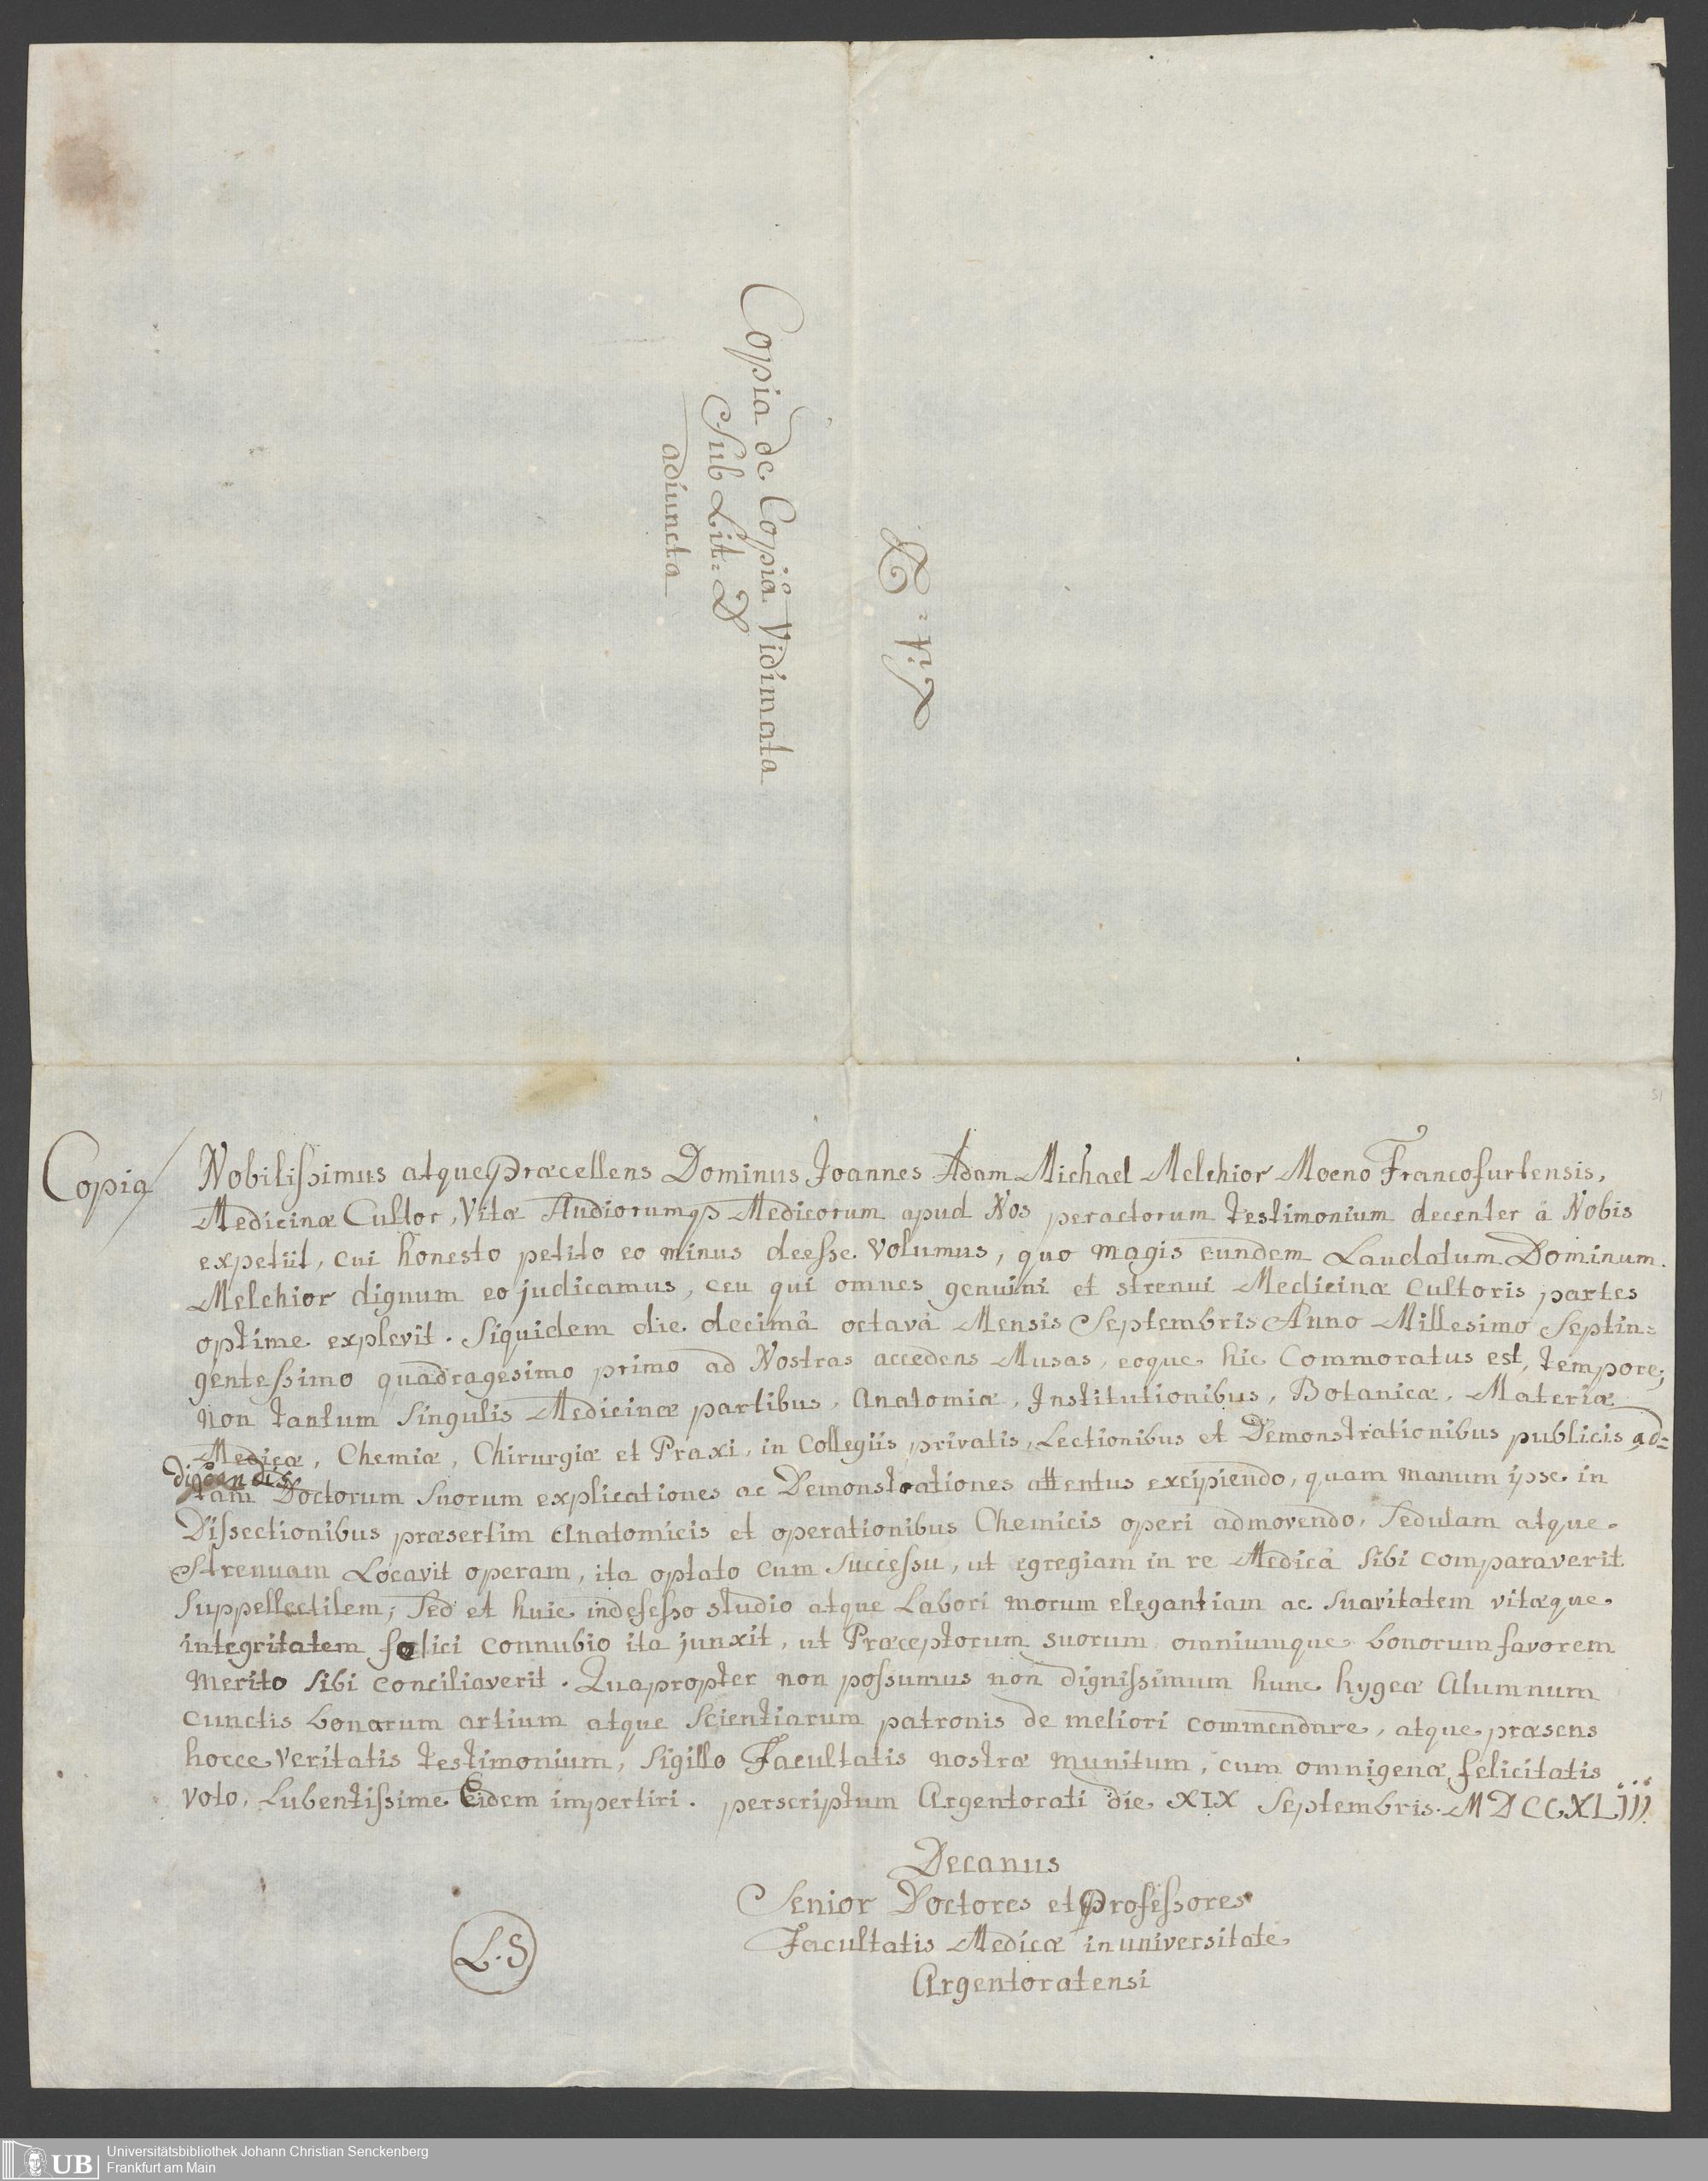 Copia de Copiâ Vidimata
Sub Lit: D
adiuncta
Lit: D
51
Copia
Nobilissimus atque Præcellens Dominus Joannes Adam Michael Melchior Moeno Francofurtensis,
Medicinæ Cultor, Vitæ Studiorumqꝫ Medicorum apud Nos peractorum testimonium decenter â Nobis
expetiit, cui honesto petito eo minus deesse volumus, quo magis eundem Laudatum Dominum
Melchior dignum eo judicamus, ceu qui omnes genuini et strenui Medicinæ Cultoris partes
optime explevit. Siquidem die decimâ octavâ Mensis Septembris Anno Millesimo Septin=
gentessimo quadragesimo primo ad Nostras accedens Musas, eoque hic Commoratus est, tempore,
non tantum Singulis Medicinæ partibus, Anatomiæ, Institutionibus, Botanicæ, Materiæ
Medicæ, Chemiæ, Chirurgiæ et Praxi, in Collegiis privatis, Lectionibus et Demonstrationibus publicis ad=
discendis
tam Doctorum Suorum explicationes ac Demonstrationes attentus excipiendo, quam manum ipse in
Dissectionibus præsertim Anatomicis et operationibus Chemicis operi admovendo, Sedulam atque
Strenuam Locavit operam, ita optato cum Successu, ut egregiam in re Medicâ Sibi comparaverit
Suppellectilem; Sed et huic indefesso studio atque Labori morum elegantiam ac Suavitatem vitæque
integritatem fœlici connubio ita junxit, ut Præceptorum suorum omniumque bonorum favorem
Merito Sibi conciliaverit. Quapropter non possumus non dignissimum hunc hygeæ Alumnum
cunctis bonarum artium atque Scientiarum patronis de meliori commendare, atque præsens
hocce Veritatis testimonium, Sigillo Facultatis nostræ munitum, cum omnigenæ felicitatis
voto, Lubentissime Eidem impertiri. perscriptum Argentorati die XIX Septembris. MDCCXLiii.
Decanus
Senior Doctores et Professores
Facultatis Medicæ in universitate
Argentoratensi
L.S
UB
Universitätsbibliothek Johann Christian Senckenberg
Frankfurt am Main